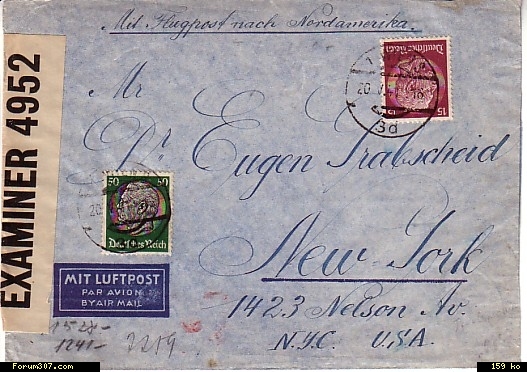 Mit Flugpost nach Nordamerika.
EXAMINER 4952
Deutsches Reich
15
Mr
Dr Eugen Trabscheid
50 50
Deutsches Reich
New-York
MIT LUFTPOST
PAR AVION
BY AIR MAIL
1423 Nelson Av.
N.Y.C. U.S.A.
2219
Forum307.com
159 ko